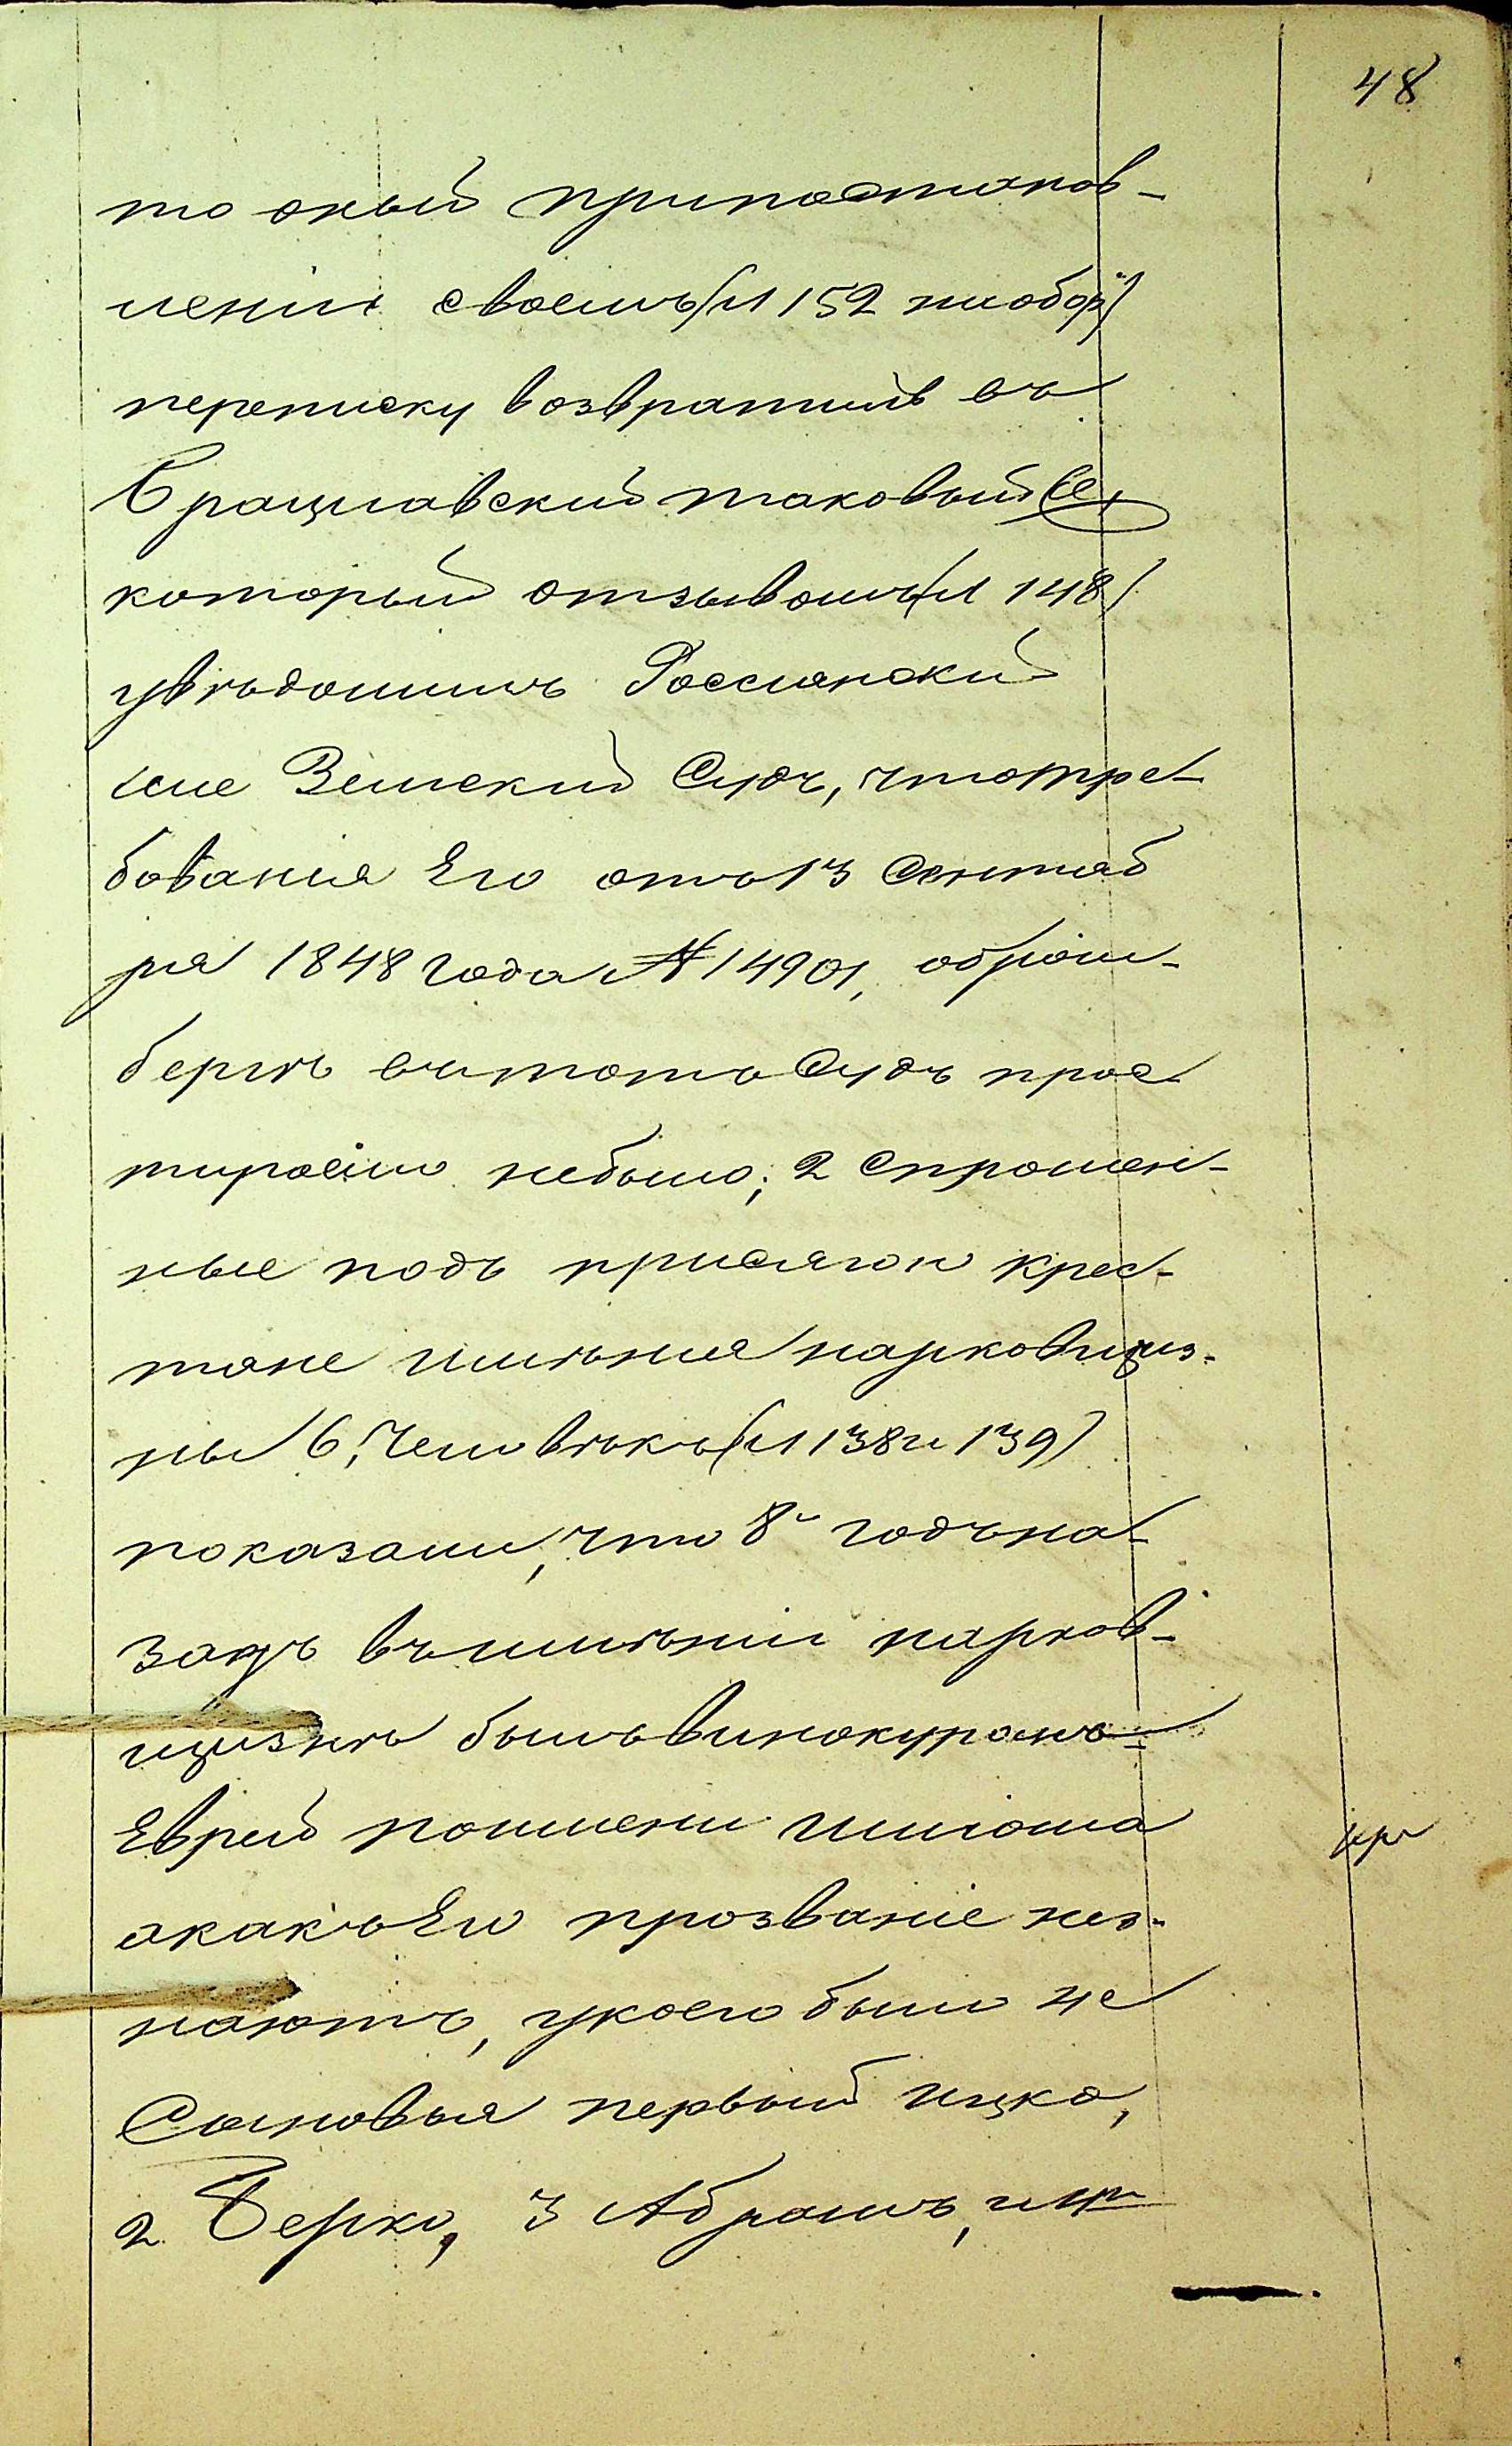 48
то оный припостанов-
леніи своемъ (л 152 наобор)
переписку возвратилъ въ
Брацлавскій таковый же,
который отзывомъ (л 148)
увѣдомилъ Россіенскій
Земскій Судъ, что тре-
бованія Его отъ 13 Сентяб
ря 1848 года № 14901, обром-
бергѣ въ тотъ Судъ прое
тироемо небыло; 2 спрошен-
ные подъ присягою крес-
тяне имѣнія парковщиз-
ны 6, Человѣкъ (л 138 и 139)
показали, что 8ь годъ на-
задъ въ имѣніи парков-
щизнѣ былъ винокуромъ
Еврей по имени Шліома
а какъ Его прозваніе нез-
наютъ, у коего было 4е
Сыновья первый Ицко,
2 Берко, 3 Абрамъ, и